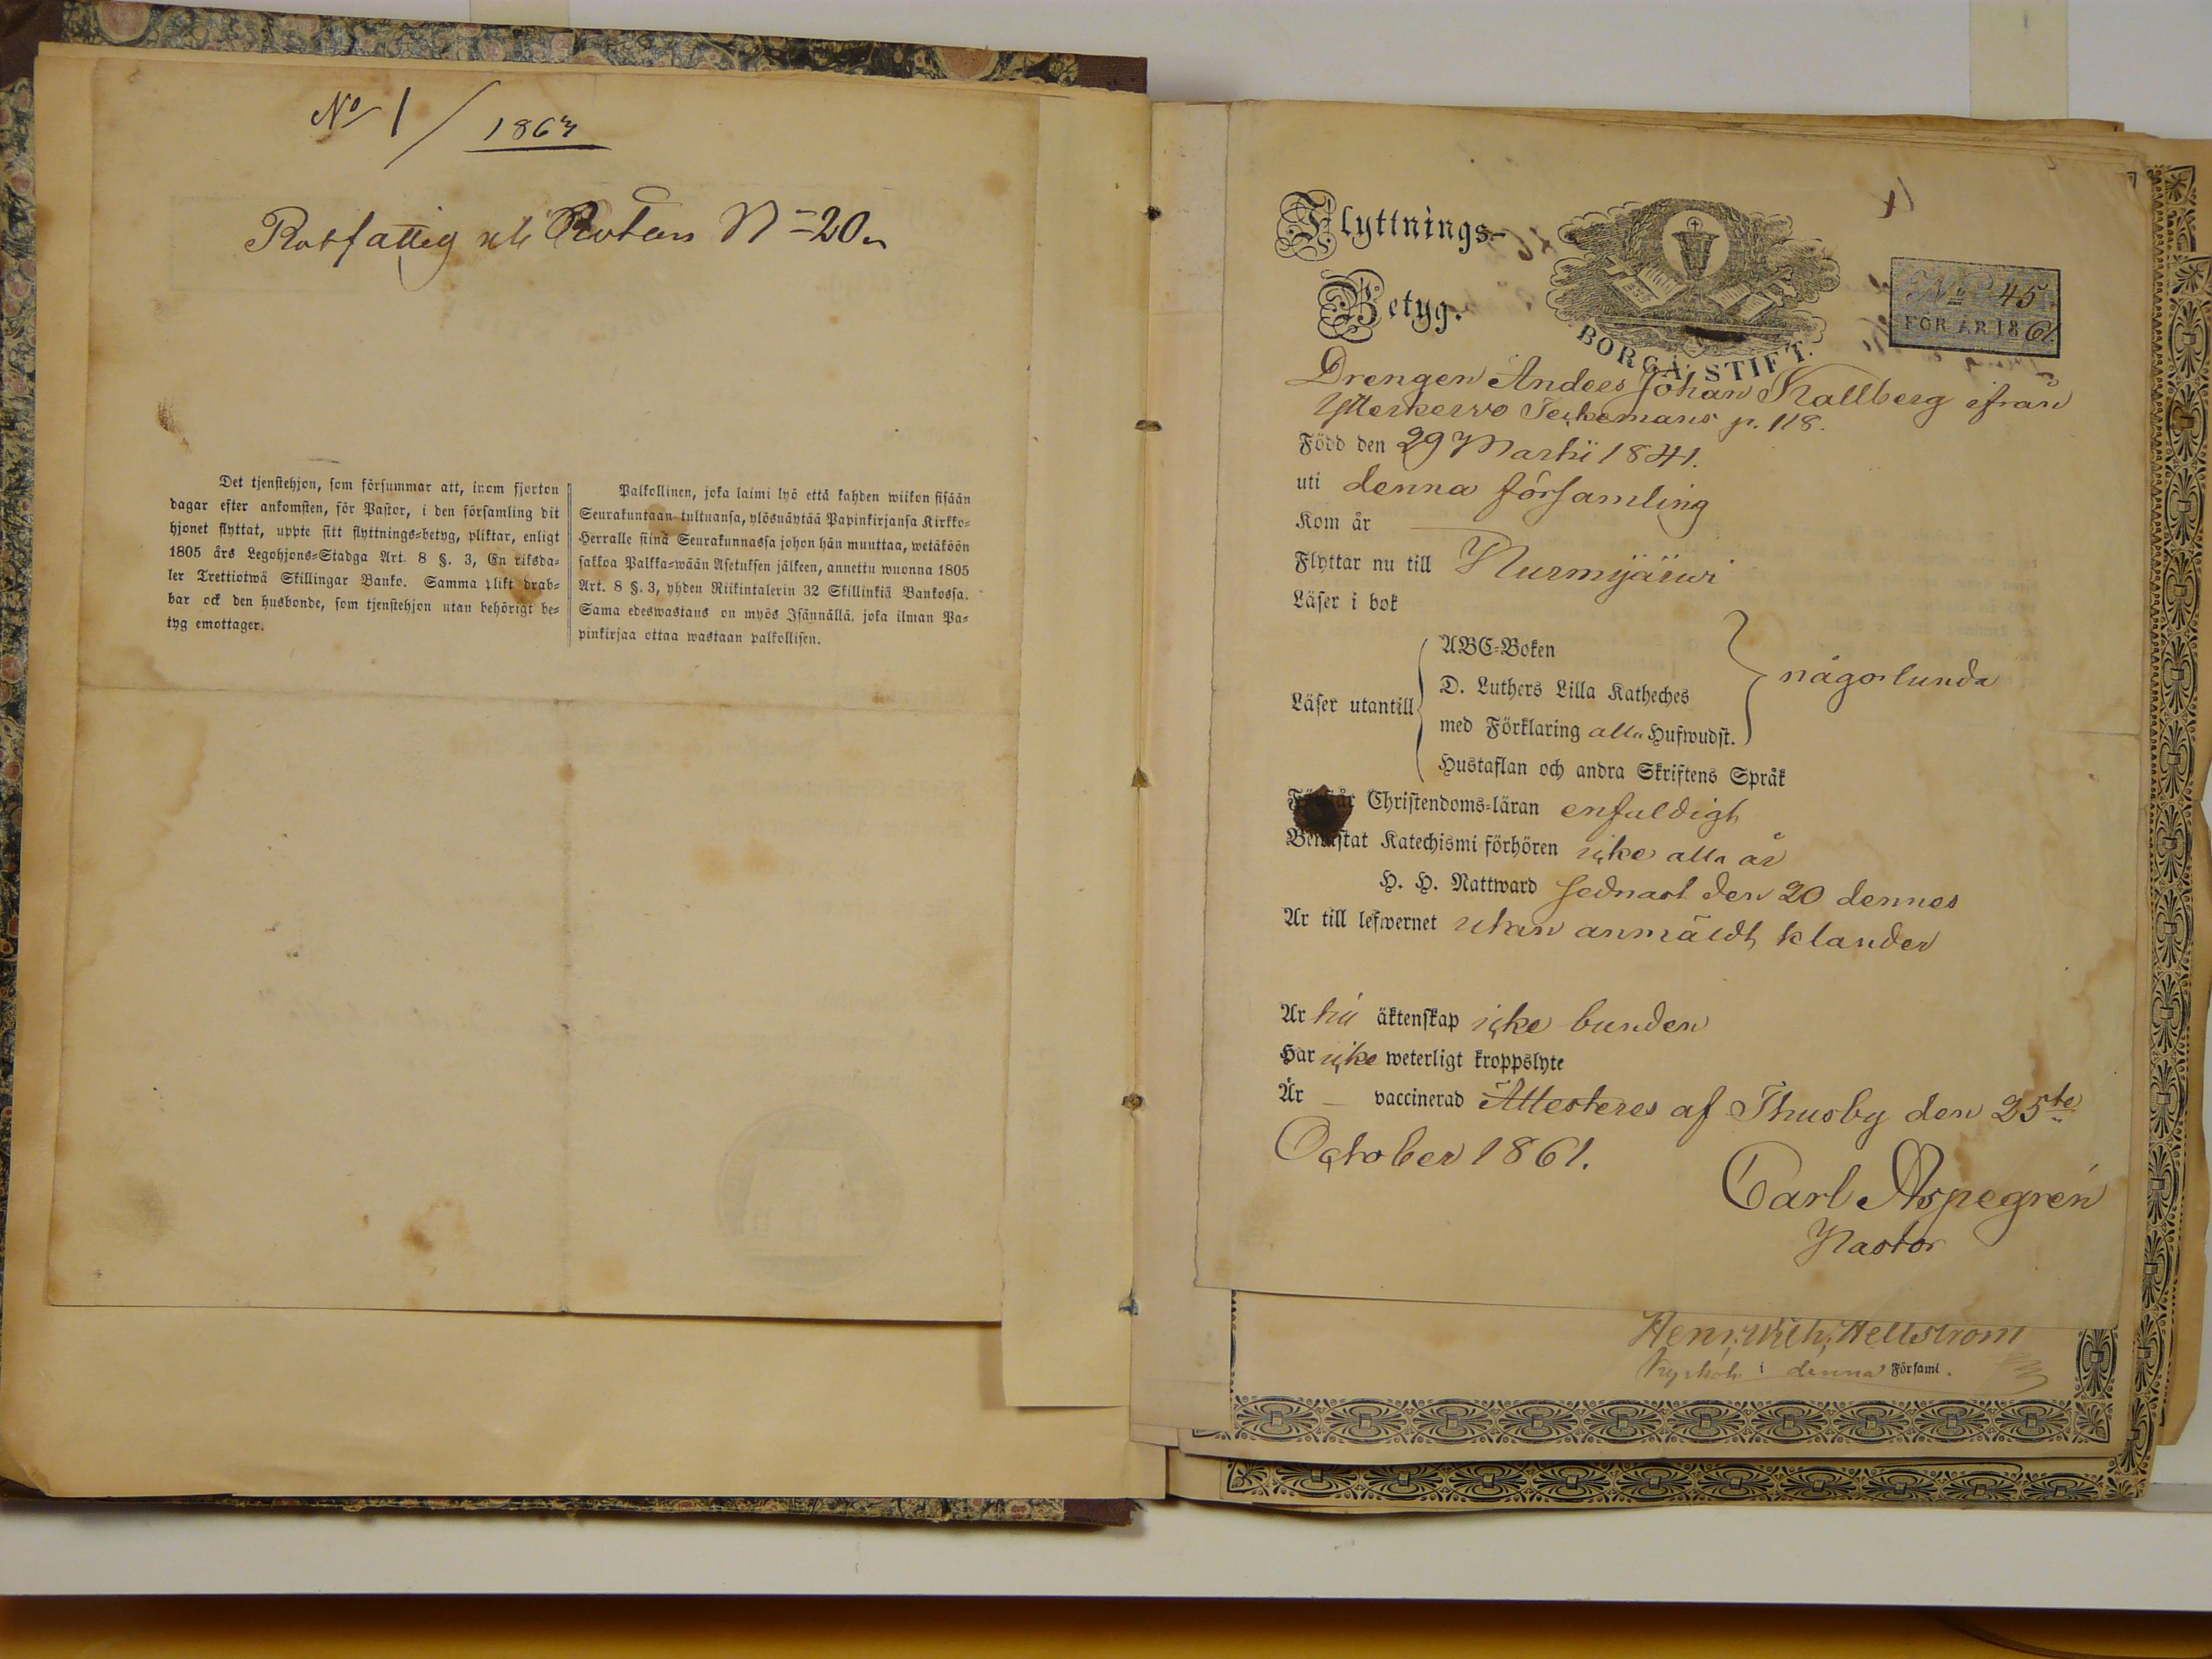 No 1 / 1863
Rotfattig uti Rotan N=20
Det tjenstehjon, som försummar att, inom fjorton
dagar efter ankomsten, för Pastor, i den församling dit
hjonet flyttat, uppte sitt flyttnings=betyg, pliktar, enligt
1805 års Legohjons=Stadga Art. 8 §. 3, En riksda=
ler Trettiotwå Skillingar Banko. Samma plikt drab=
bar ock den husbonde, som tjenstehjon utan behörigt be=
tyg emottager.
Palkollinen, joka laimi lyö että kahden wiikon sisään
Seurakuntaan tultuansa, ylösnäytää Papinkirjansa Kirkko=
Herralle siinä Seurakunnassa johon hän muuttaa, wetäköön
sakkoa Palkka=wään Asetuksen jälkeen, annettu wuonna 1805
Art. 8 §. 3, yhden Riikintalerin 32 Skillinkiä Bankossa.
Sama edeswastaus on myös Isännällä, joka ilman Pa=
pinkirjaa ottaa wastaan palkollisen.
Flyttnings-
Betyg.
BORGÅ STIFT.
No 45
FÖR ÅR 1861
Drengen Anders Johan Kallberg ifrån
Ytterkervo Seckemans p. 118.
Född den 29 Martii 1841.
uti denna församling
Kom år —
Flyttar nu till Nurmijärwi
Läser i bok
Läser utantill
ABC=Boken
D. Luthers Lilla Katheches
med Förklaring alla Hufwudst.
någorlunda
Hustaflan och andra Skriftens Språk
Förstår Christendoms=läran enfaldigt
Bewistat Katechismi förhören icke alla år
H. H. Nattward sednast den 20 dennes
Är till lefwernet utan anmäldt klander
Är till äktenskap icke bunden
Har icke weterligt kroppslyte
Är — vaccinerad Attesteres af Thusby den 25te
October 1861.
Carl Aspegrén
Pastor
Henr: Wilh: Hellström
Kyrkoh i denna Församl.